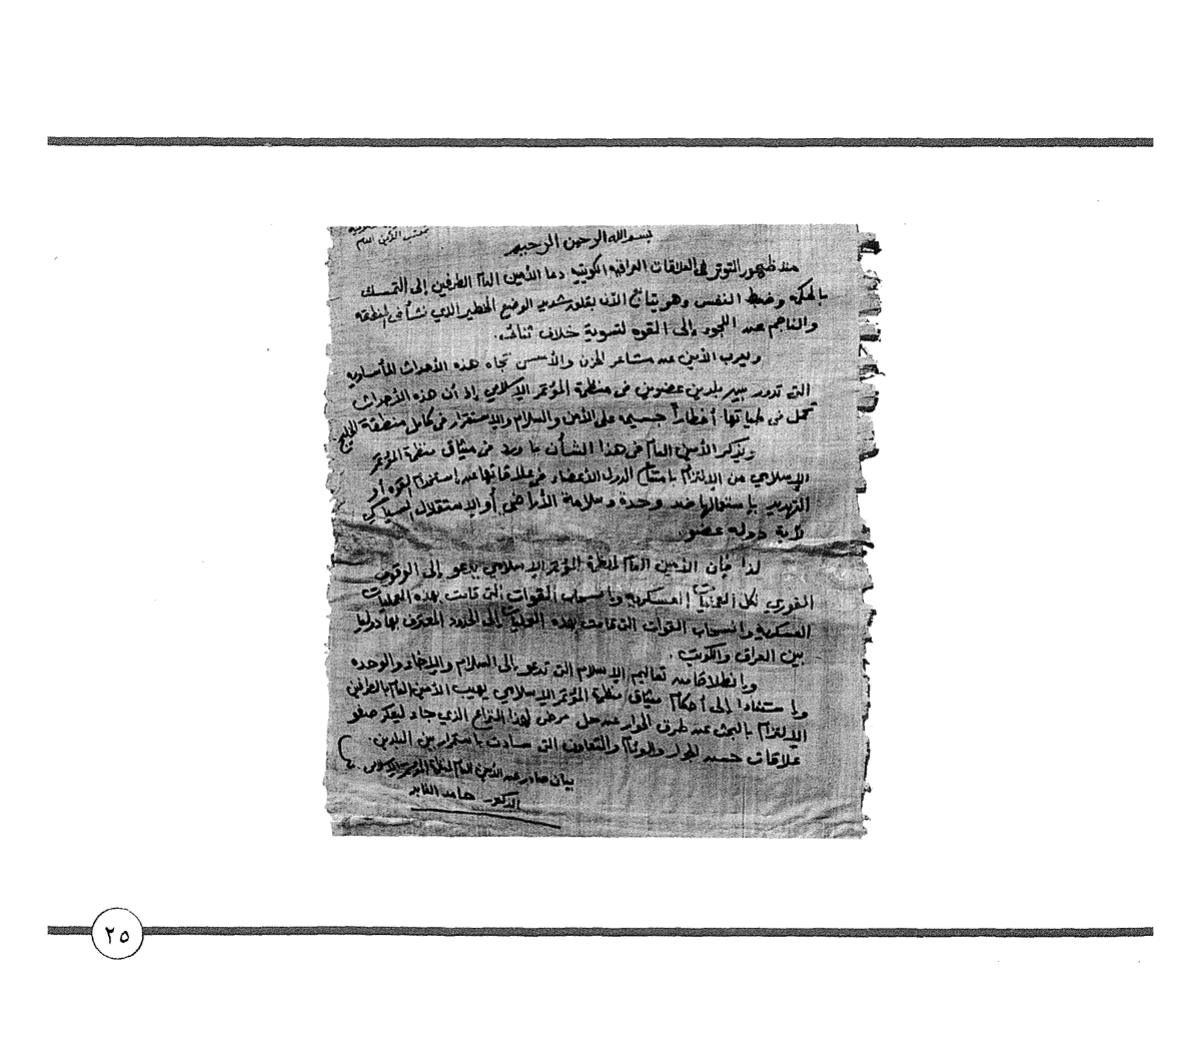 مكتب الأمين العام
بسم الله الرحمن الرحيم
منذ ظهور التوتر في العلاقات العراقية الكويتية دعا الأمين العام الطرفين إلى التمسك
بالحكمة وضبط النفس وهو يتابع الآن بقلق شديد الوضع الخطير الذي نشأ في المنطقة
والناجم عن اللجوء إلى القوه لتسوية خلاف ثنائي.
ويعرب الأمين عن مشاعر الحزن والأسى تجاه هذه الأحداث المأساوية
التي تدور بين بلدين عضوين في منظمة المؤتمر الإسلامي إذ أن هذه الأحداث
تحمل في طياتها أخطاراً جسيمه على الأمن والسلام والإستقرار في كامل منطقة الخليج
ويذكر الأمين العام في هذا الشأن بما ورد في ميثاق منظمة المؤتمر
الإسلامي من الإلتزام بامتناع الدول الأعضاء في علاقاتها عن إستخدام القوه أو
التهديد بإستعمالها ضد وحدة وسلامة الأراضي أو الإستقلال السياسي
لأية دوله عضو.
لذا فإن الأمين العام لمنظمة المؤتمر الإسلامي يدعو إلى الوقوف
الفوري لكل العمليات العسكرية وبانسحاب القوات التي قامت بهذه العمليات
العسكرية وانسحاب القوات التي قامت بهذه العمليات إلى الحدود المعترف بها دوليا
بين العراق والكويت.
وبانطلاقا من تعاليم الإسلام التي تدعو إلى السلام والإخاء والوحده
وبإستنادا إلى أحكام ميثاق منظمة المؤتمر الإسلامي يهيب الأمين العام بالطرفين
الإلتزام بالبحث عن طريق الحوار عن حل مرض لهذا النزاع الذي جاء ليعكر صفو
علاقات حسن الجوار والوئام والتعاون التي سادت باستمرار بين البلدين.
بيان صادر عن الأمين العام لمنظمة المؤتمر الإسلامي
الدكتور حامد الغابد
٢٥